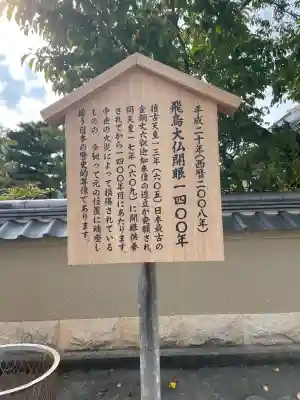 平成二十年(西暦二〇〇八年)
飛鳥大仏開眼一四〇〇年
推古天皇一三年(六〇五)日本最古の
金銅丈六釈迦如来像の造立が発願され、
同天皇一七年(六〇九)に開眼供養
されてから一四〇〇年目にあたります。
中世の火災によって損傷されている
ものの、今猶って元の位置に鎮座し
給う日本の歴史的尊像であります。